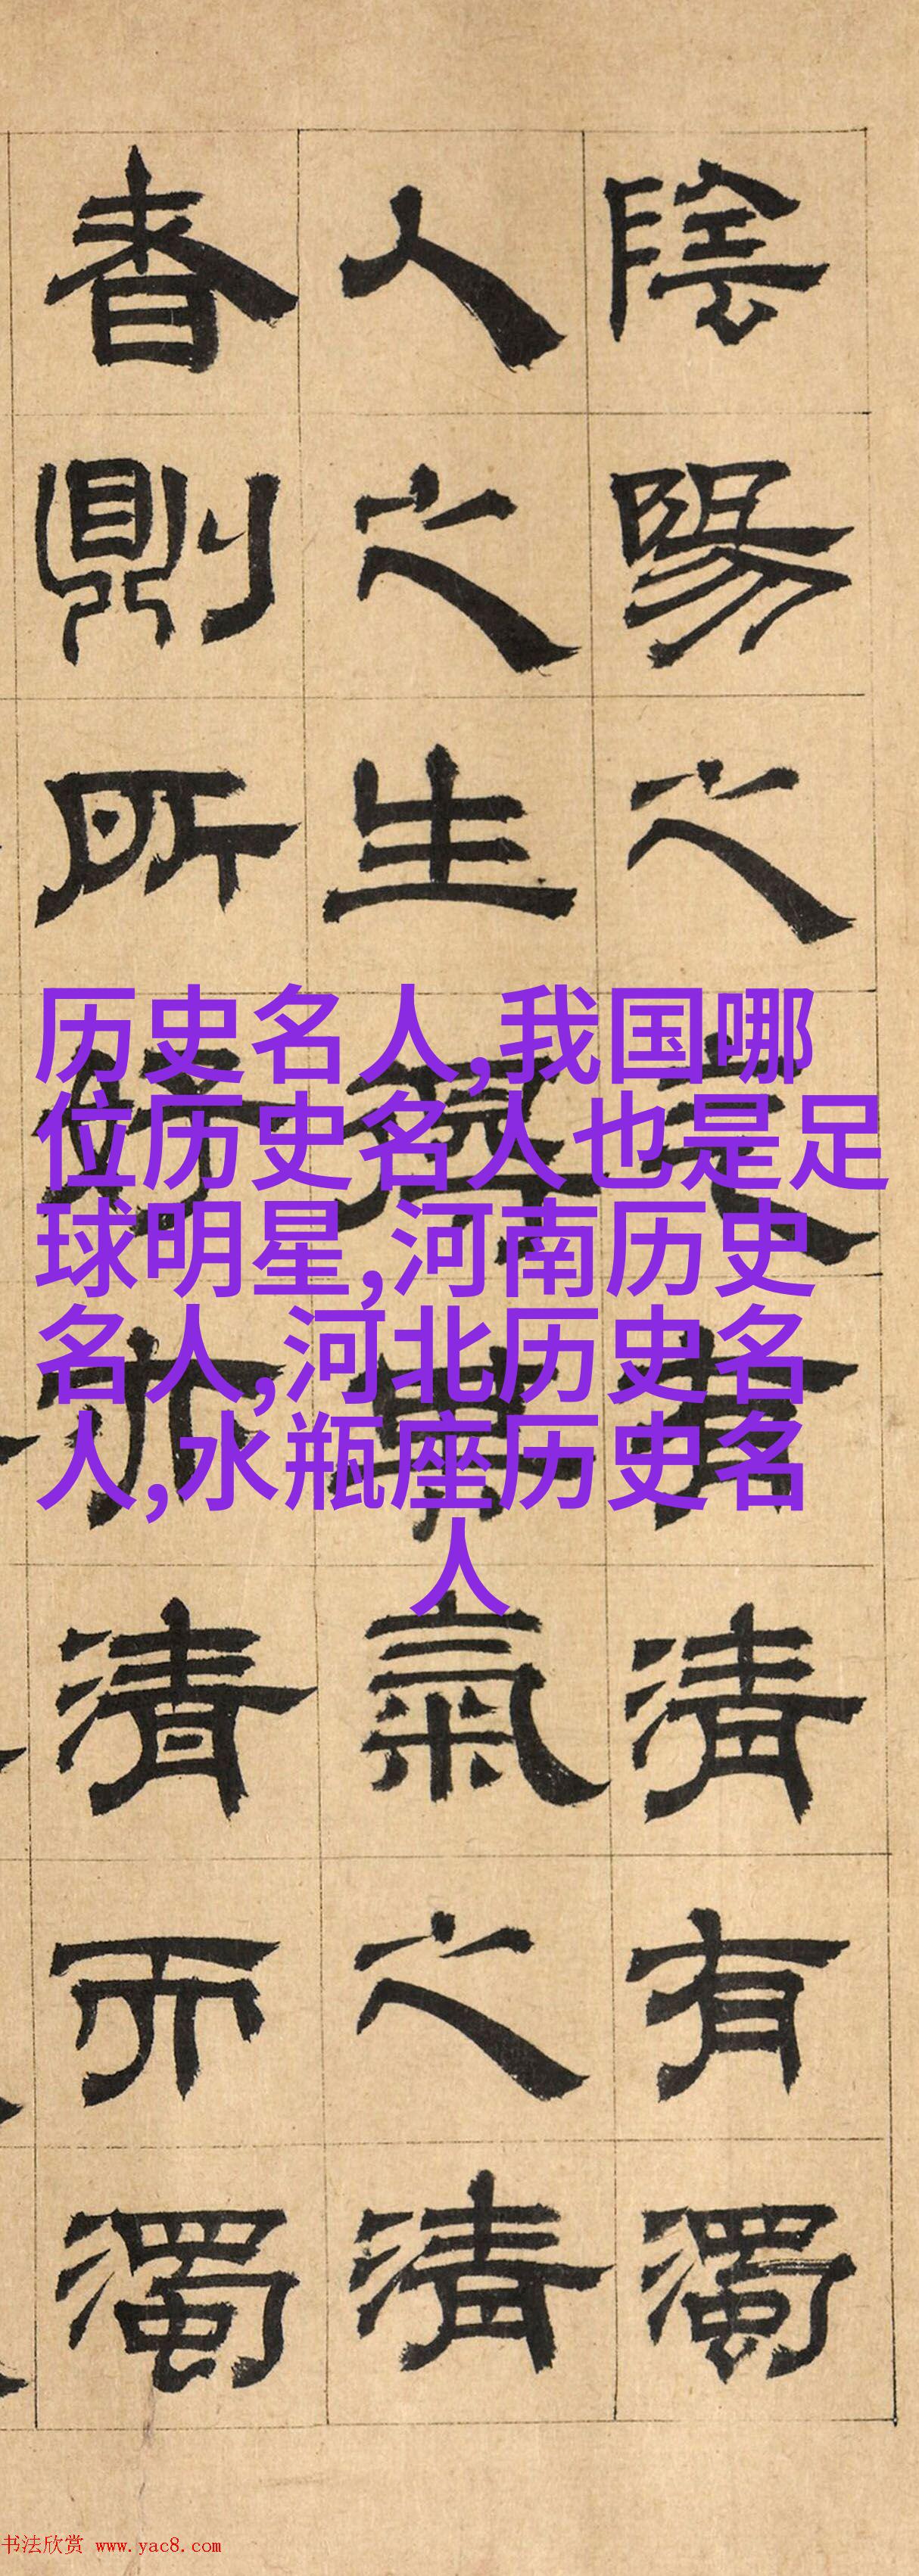 陰陽之有清有濁
人之生氣之清
者則所亦清而濁
历史名人,我国哪
位历史名人也是足
球明星,河南历史
名人,河北历史名
人,水瓶座历史名
人
书法欣赏 www.yac8.com